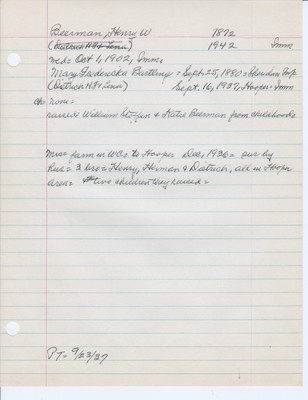 Beerman, Henry W. 1872
(Dietrich H. & Lena) 1942 Imm
md= Oct 1, 1902, Imm.
Mary Fredericka Bartling = Sept. 25, 1880 = Twp
(Dietrich H & Lena) Sept. 16, 1937, Hooper = Imm
ch= none:
raised William Steffen & Katie Beerman from childhood=
Mrs= farm in WC= to Hooper Dec, 1936 = sur by
hus = 3 bro = Henry, Herman & Dietrich, all in Hooper
area = two children they raised =
PT= 9/23/37